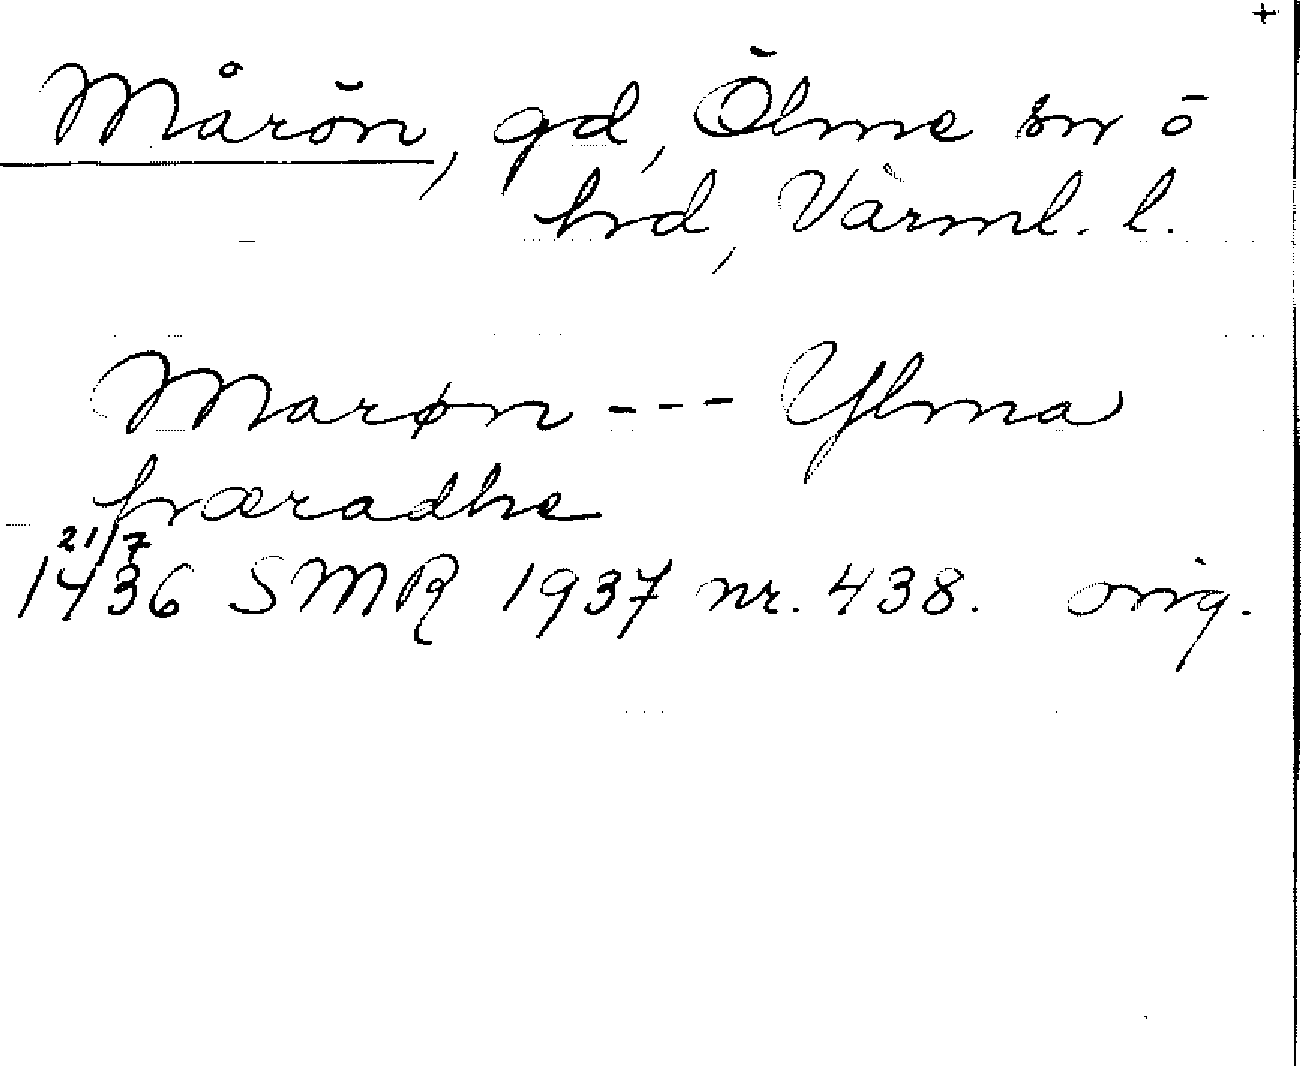 +
Mårön, gd, Ölme sn o
hd, Värml. l.
Marøn --- Ylma
hæradhe
21/7
1436 SMR 1937 nr. 438. orig.